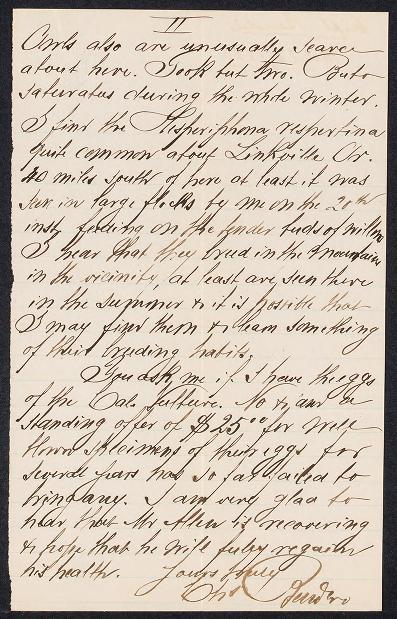 II
Owls also are unusually scarce
about here. Took but two. Buteo
saturatus during the whole winter.
I find the Hesperiphona vespertina
quite common about Linkville Or.
40 miles south of here at least it was
seen in large flocks by me on the 20th
inst, feeding on the tender buds of willow
I hear that they breed in the mountains
in the vicinity, at least are seen there
in the summer & it is possible that
I may find them & learn something
of their breeding habits.
You ask me if I have the eggs
of the Cal. Vulture. No &
standing offer of $25.00 for well
blown specimens of their eggs for
several years has so far failed to
bring any. I am very glad to
hear that Mr Allen is recovering
& hope that he will fully regain
his health. Yours truly
Chs Bendire